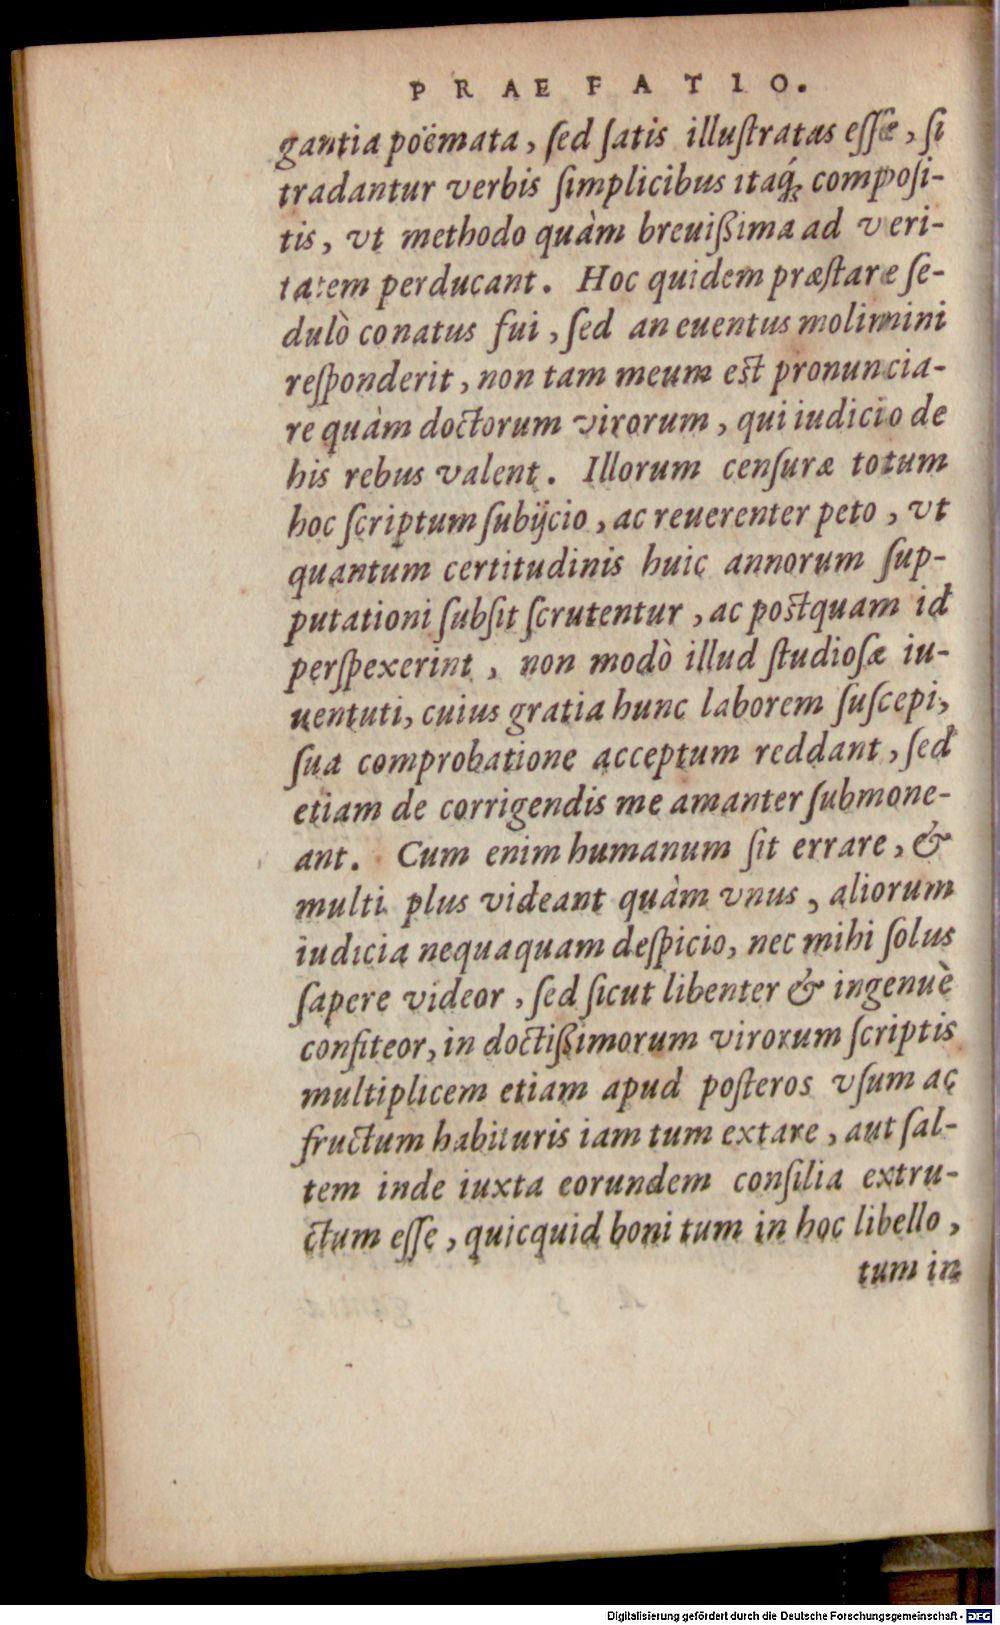 PRAEFATIO.
gantia poëmata, ſed ſatis illuſtratas eſſe, ſi
tradantur verbis ſimplicibus itaq́; compoſi-
tis, vt methodo quàm breuißima ad veri-
tatem perducant. Hoc quidem præſtare ſe-
dulò conatus fui, ſed an euentus molimini
reſponderit, non tam meum eſt pronuncia-
re quàm doctorum virorum, qui iudicio de
his rebus valent. Illorum cenſuræ totum
hoc ſcriptum ſubijcio, ac reuerenter peto, vt
quantum certitudinis huic annorum ſup-
putationi ſubſit ſcrutentur, ac poſtquam id
perſpexerint, non modò illud ſtudioſæ iu-
uentuti, cuius gratia hunc laborem ſuſcepi,
ſua comprobatione acceptum reddant, ſed
etiam de corrigendis me amanter ſubmone-
ant. Cum enim humanum ſit errare, &
multi plus videant quàm vnus, aliorum
iudicia nequaquam deſpicio, nec mihi ſolus
ſapere videor, ſed ſicut libenter & ingenuè
confiteor, in doctißimorum virorum ſcriptis
multiplicem etiam apud poſteros vſum ac
fructum habituris iam tum extare, aut ſal-
tem inde iuxta eorundem conſilia extru-
ctum eſſe, quicquid boni tum in hoc libello,
tum in
Digitalisierung gefördert durch die Deutsche Forschungsgemeinschaft - DFG